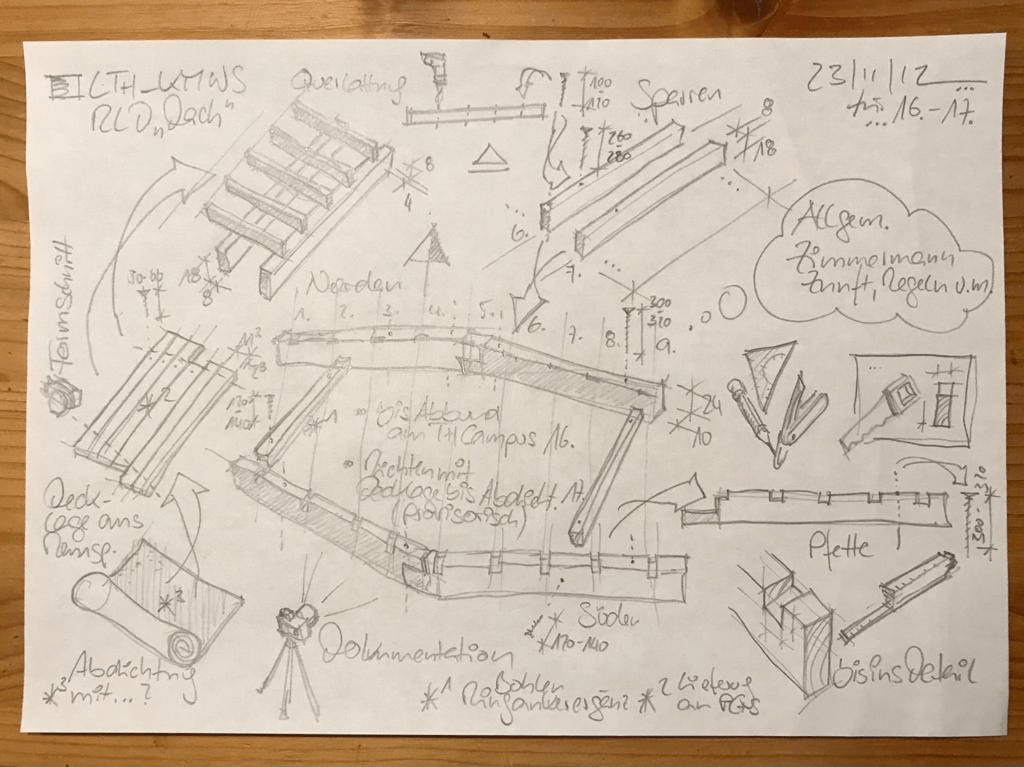 LTH_KMWS
RLD „Dach"
Querlattung
100
120
Sparren
23/11/12
für... 16.-17.
...
260
280
8
18
8
4
6.
7.
...
...
Allgem.
Zimmermann
Zunft, Regeln u.m.
18
8
Norden
Terminschritt
30-60
1.
2.
3.
4.
5.
6.
7.
8.
9.
300
320
*2
*3
*2
120*
140
*1
bis Abbund
am TH Campus 16.
Richten mit
Decklage bis Abdicht. 17.
(provisorisch)
24
10
Deck-
lage aus
Pfette
300-320
*2
Abdichtung
*3 mit...?
Dokumentation
Süden
120-140
*1 Bohlen
Ringankerergänz
*2 Lieferung
an
bis ins Detail